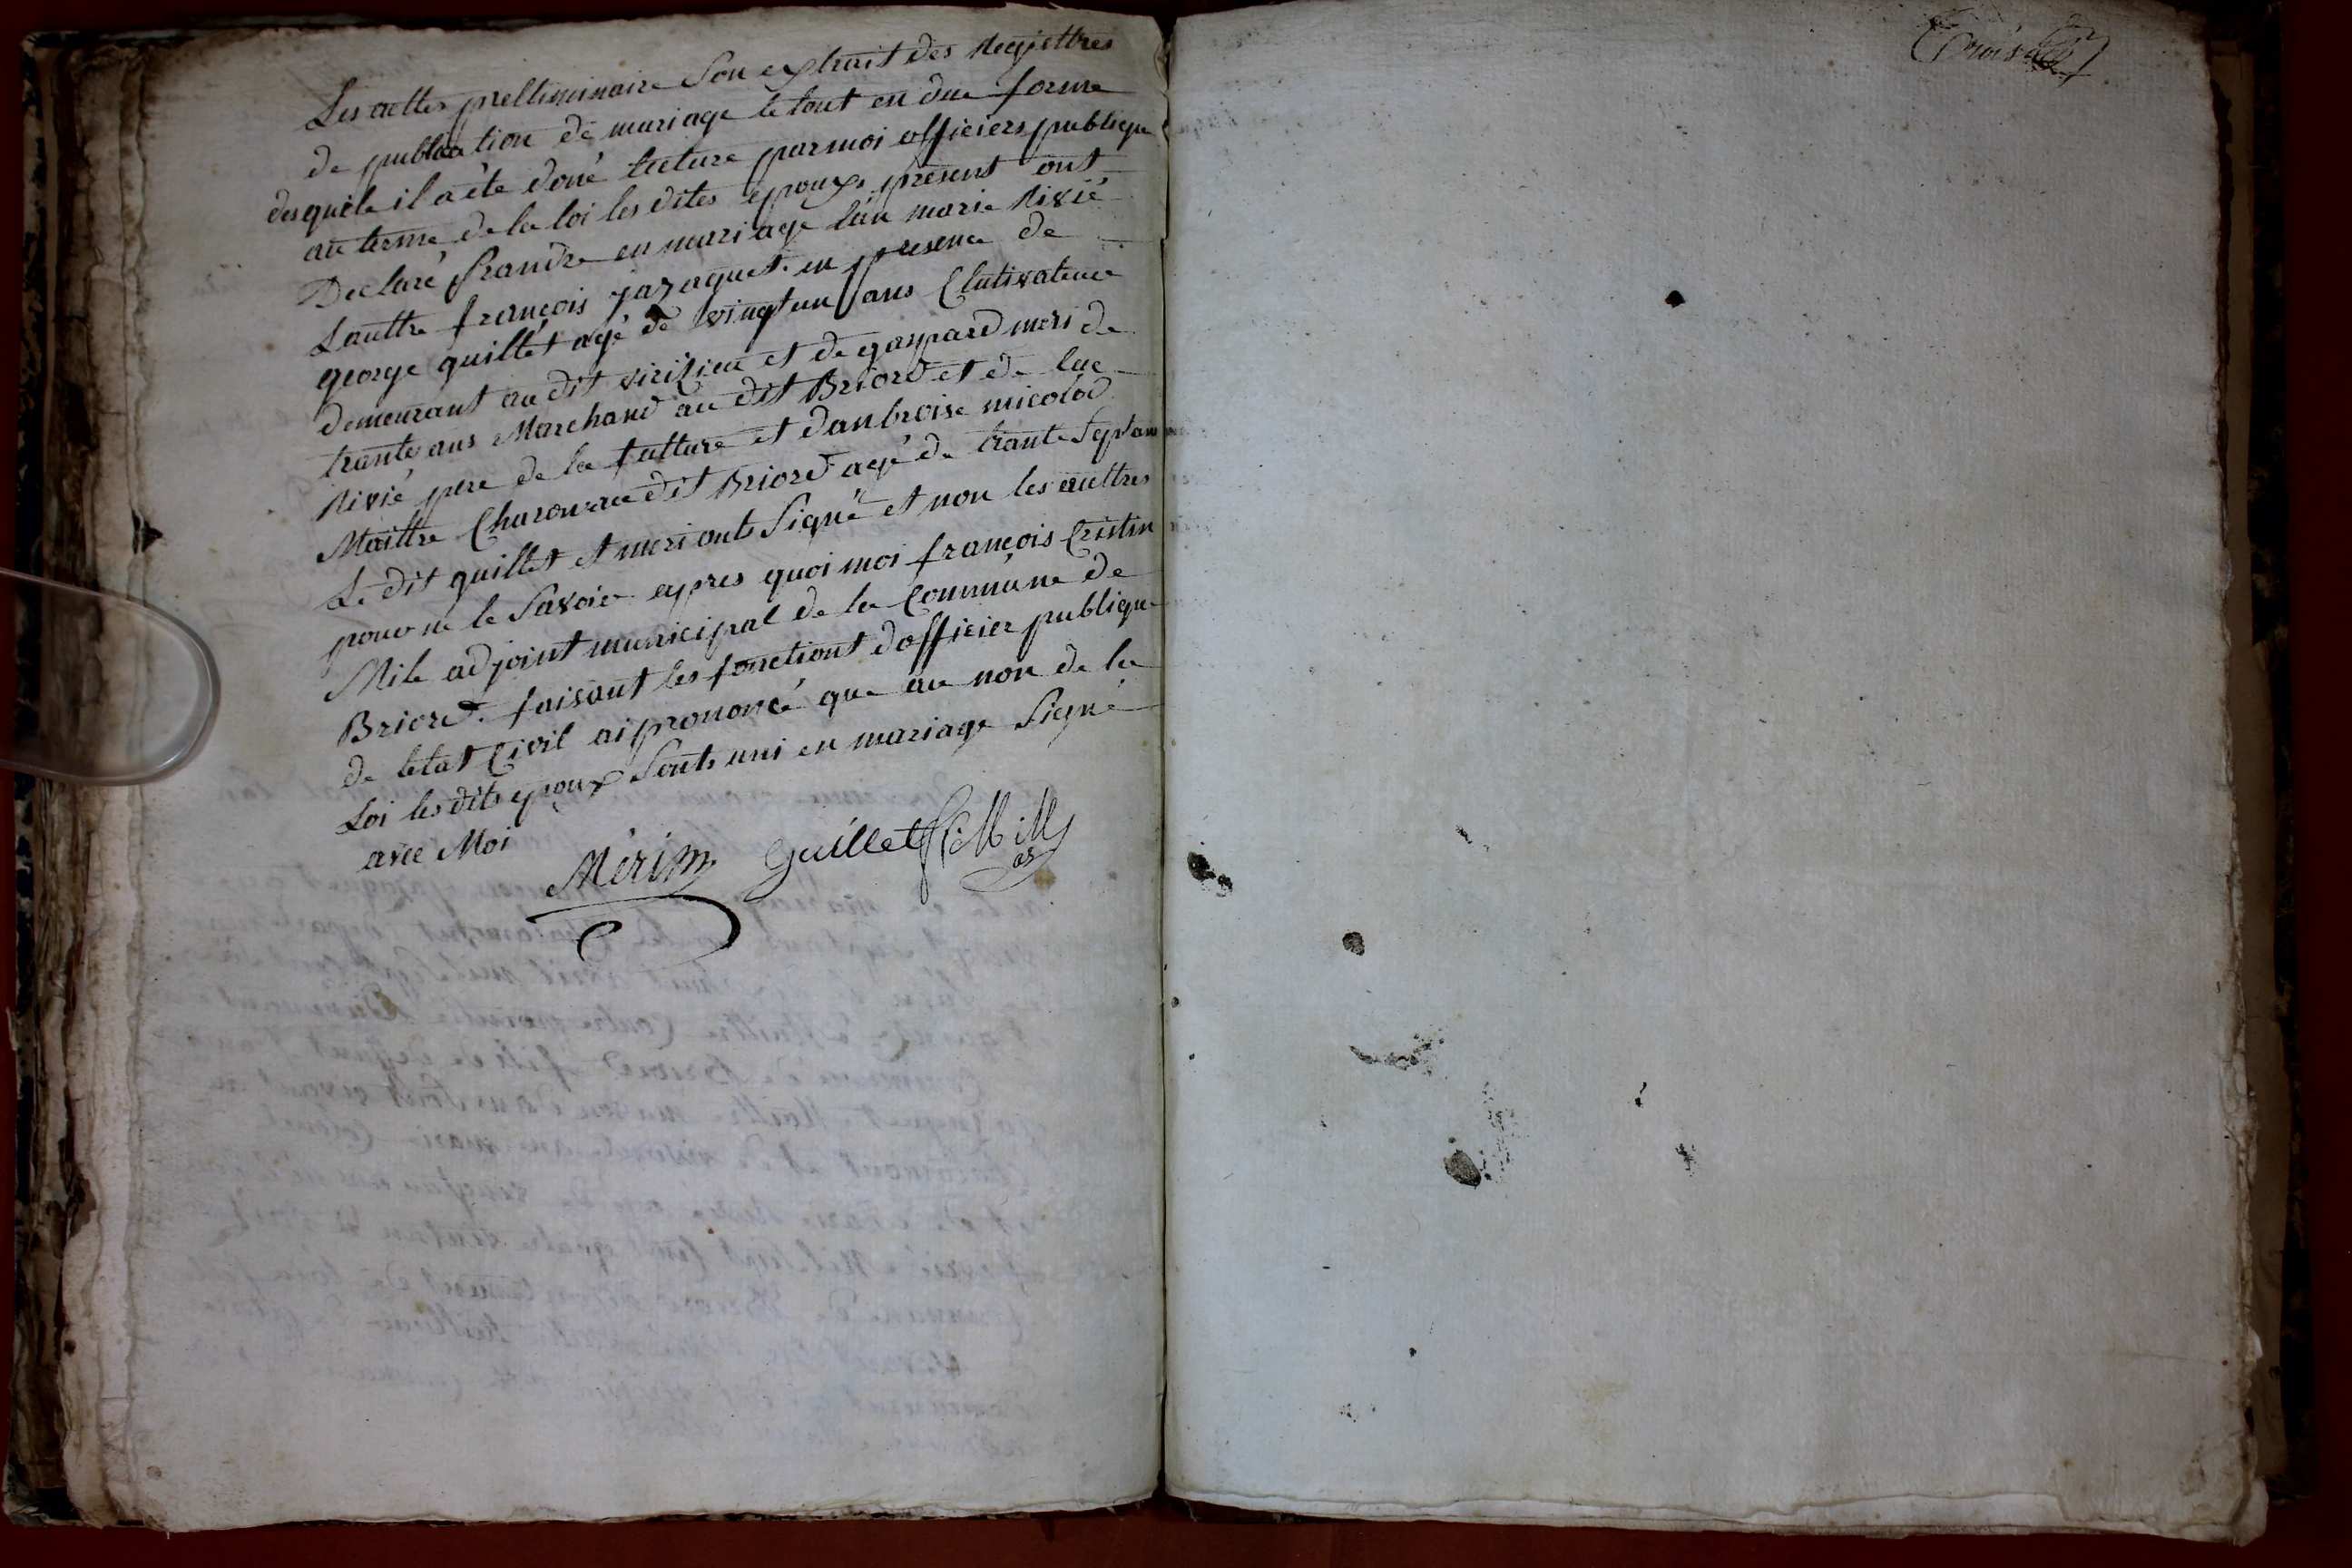 Les actes prelliminaire Son extrait des Registtres
de publication de mariage le tout en due forme
desquele il a ête doné lecture par moi officiers publique
au terme de la loi les dites époux présent ont
Declaré prandre en mariage l'un marie Rivié
Lauttre françois jazaquet. en presence de
george guillet agé de vingt un ans Clutivateur
demeurant au dit virizieu et de gaspard meri de
trante ans Marchand au dit Briord et de luc
Rivié pere de la futture et d'anbroise micolod
Maittre Charon au dit Briord agé de trante Septans
Le dit guillet et meri onts Signé et non les auttres
pour ne le Savoir apres quoi moi françois Cristin
Mile adjoint municipal de la Commune de
Briord. faisant les fonctiont dofficier publique
de letat Civil ai prononcé que au non de la
Loi les dits epoux Sonts uni en mariage Signé
avec Moi
Mérim Guillet